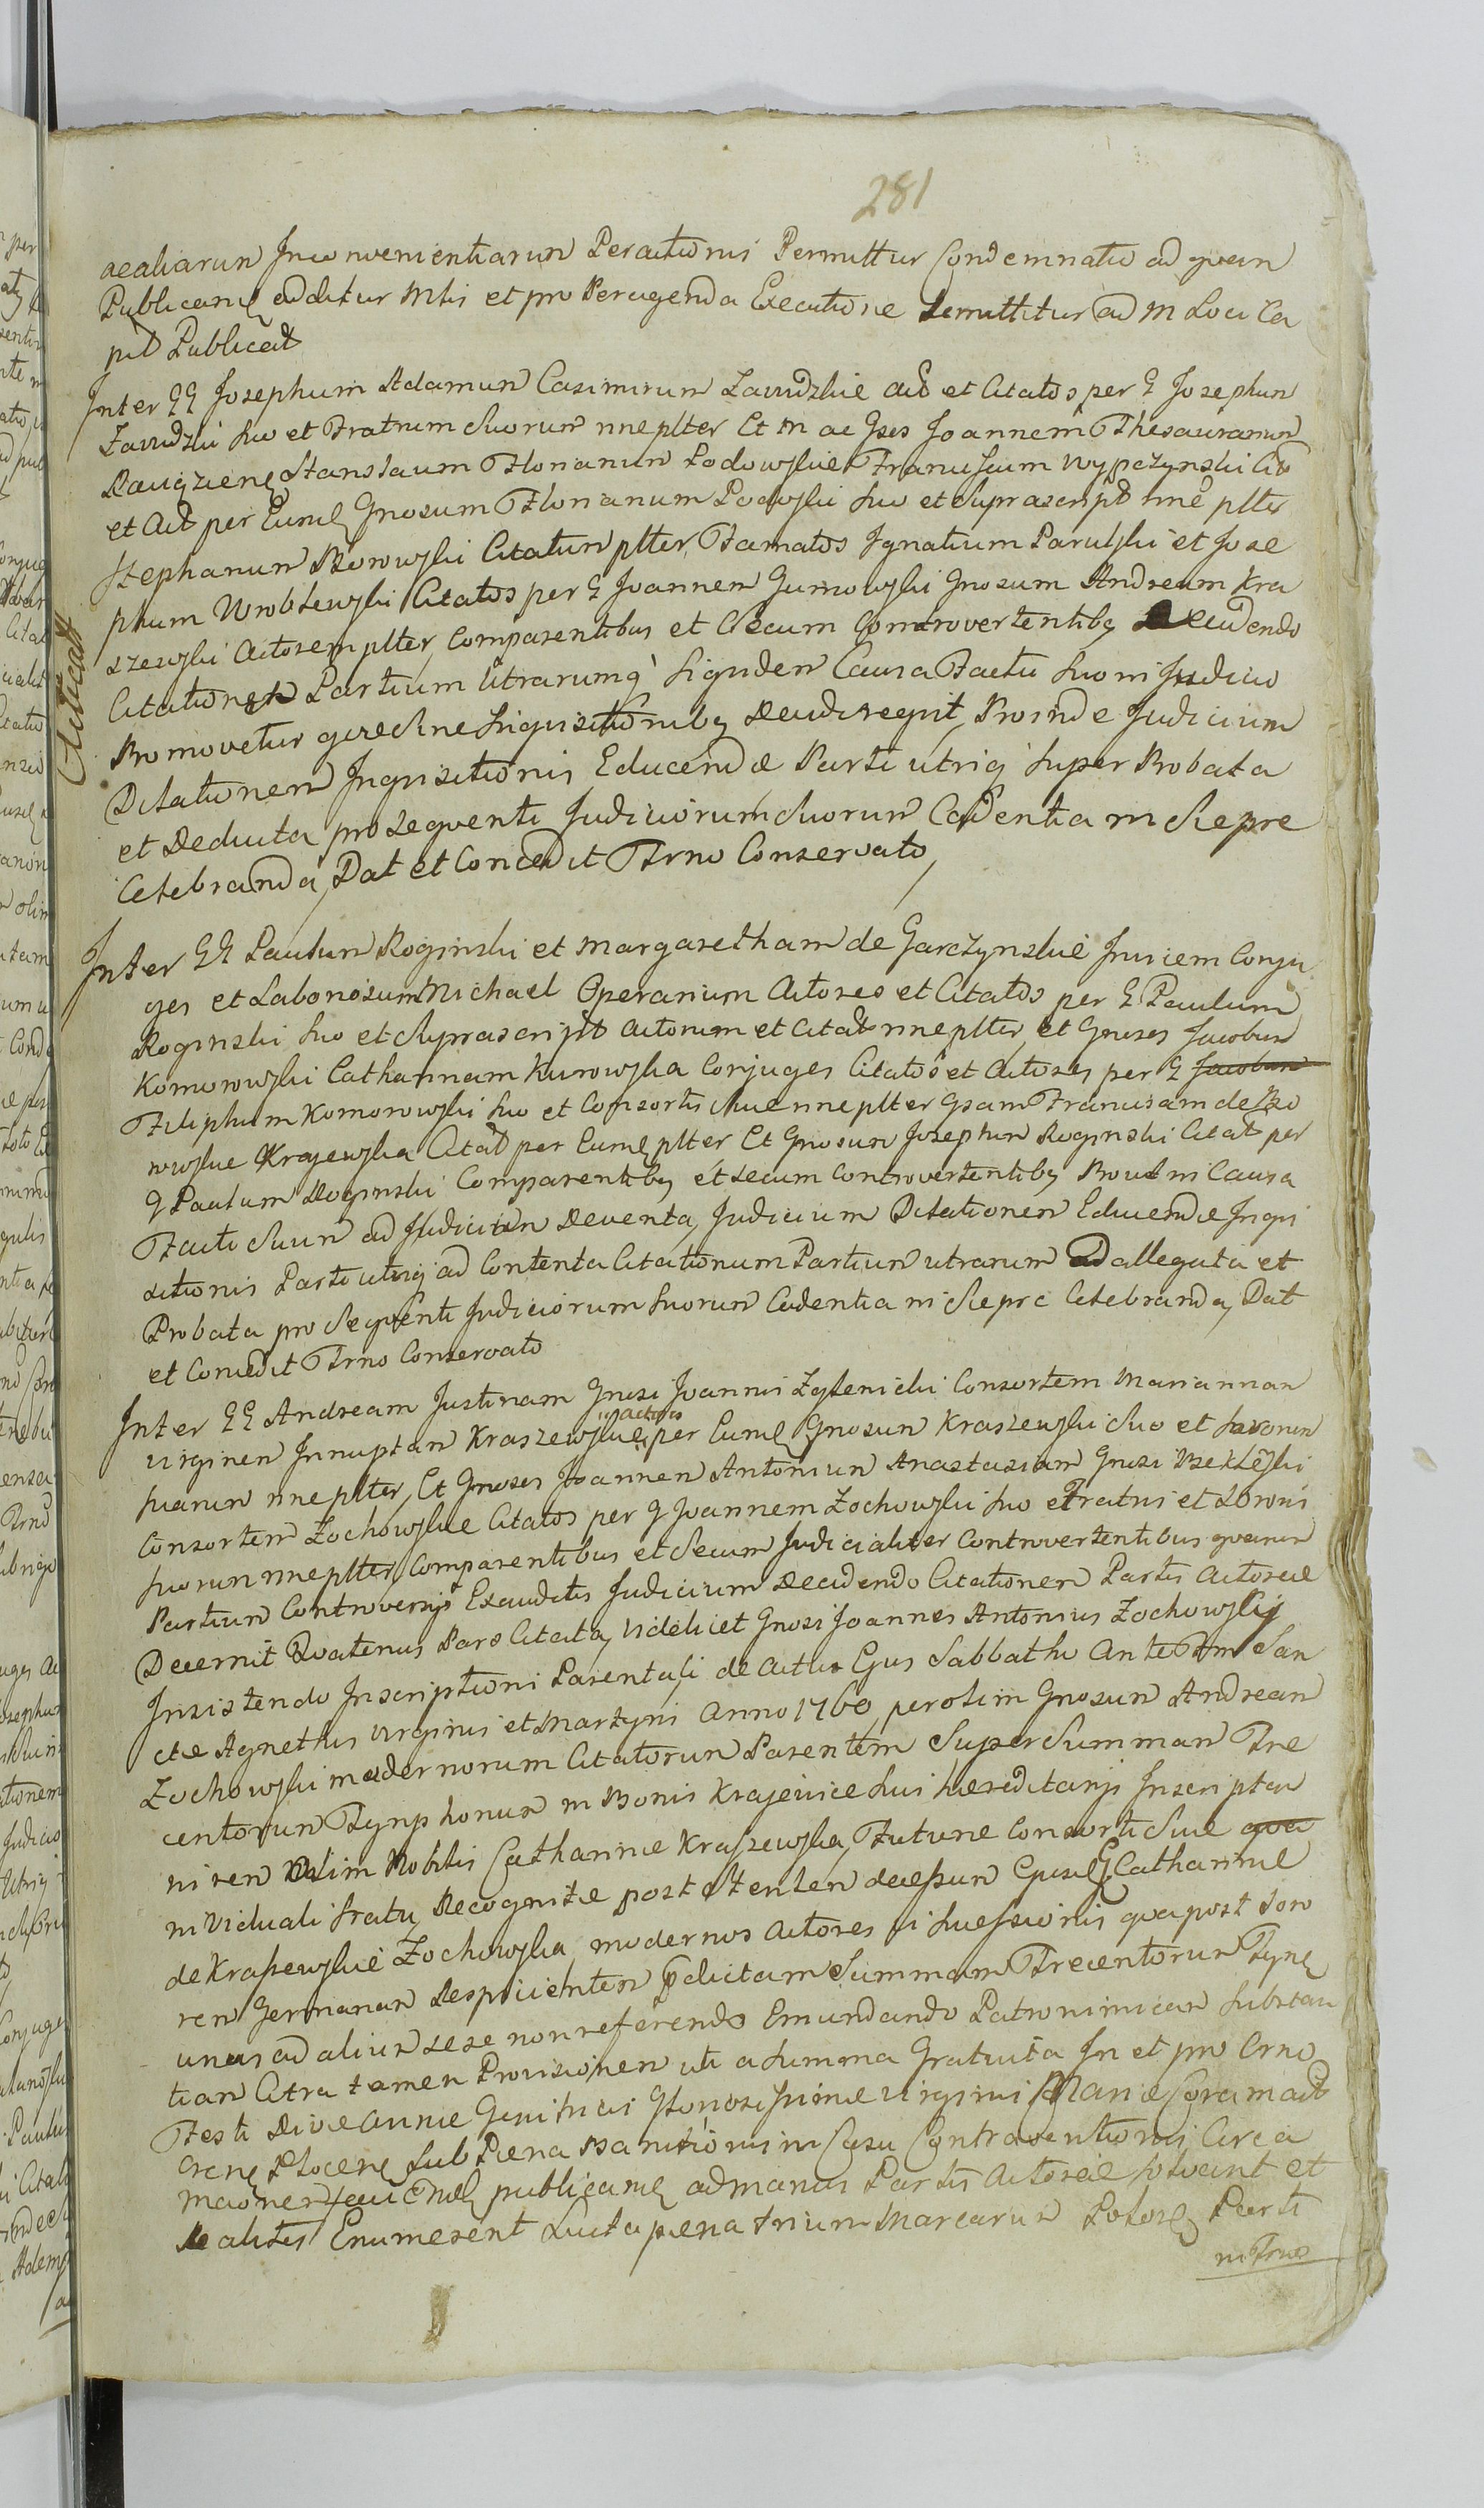 281
ac aliarum Inconvenientiarum Peractionis Permittur Condemnatio ad quam
Publicand additur Mtis et pro Peragenda Executione Remittitur ad M Loci Ca
pit Publicat
Inter GG Josephum Adamum Casimirum Zawidzkie Act et Citatos per G Josephum
Zawidzki suo et Fratrum Suorum nneplter Et M ac Gsos Joannem Thesaurarium
Stanislaum Florianum Podowskie Franciscum Wypczynski Cit
et Act per Eund Gnosum Florianum suo et Suprascript nne plter
Stephanum Borowski Citatum plter, Famatos Ignatium Parulski et Jose
phum Wroblewski Citatos per G Joannem Gumowski Gnosum Andream Kra
szewski Actorem plter, Comparentibus et Secum Controvertentibg Decidendo
Citationem Partium Utrarumq Siquidem Causa Facti Suo in Judicio
Promovetur quæ Sine Inquisitionibg Decidi nequit, Proinde Judicium
Dilationem Inquisitionis Educendæ Parti utriq Super Probata
et Deducta pro sequenti Judiciorum Suorum Cadentia in Sieprc
Celebranda, Dat et Concedit Trno Conservato
Inter GG Paulum Roginski et Margaretham de Garczynskie Invicem Conju
ges et Laboriosum Michael Operarium Actores et Citatos per G Paulum
Roginski Suo et Suprascript Actorum et Citat nneplter, et Gnosos Jacobum
Komorowski Catharinam Kurowska Conjuges Citatos et Actores per G Jacobum
Filiphum Komorowski Suo et Consortis Suæ nneplter Gsam Franciscam de
Krajewska Citat per Eund plter Et Gnosum Josephum Roginski Citat per
G Paulum Roginski Comparentibg et Secum Controvertentibg Prout in Causa
Facti Suum ad Judicium Deventa, Judicium Dilationem Educendæ Inqui
sitionis Parti utriq ad Contenta Citationum Partium utrarum ad allegata et
Probata pro Sequenti Judiciorum Suorum Cadentia in Sieprc Celebranda, Dat
et Concedit Trno Conservato
Inter GG Andream Justinam Gnosi Joannis Zglenicki Consortem Mariannam
Virginem Innuptam Kraszewskie Actores per Eund Gnosum Kraszewski Suo et Sororum
suarum nneplter, Et Gnosos Joannem Antonium Anastasiam Gnosi
Consortem Zochowskie Citatos per G Joannem Zochowski Suo et Fratris et Sororis
suorum nneplter, Comparentibus et Secum Judicialiter Controvertentibus quarum
Partium Controversijs Exauditis Judicium Decidendo Citationem Partis Actoreæ
Decernit Quatenus Pars Citata, videlicet Gnosi Joannes Antonius Zochowskij
Insistendo Inscriptioni Parentali de Actu Ejus Sabbatho Ante Ftm San
ctæ Agnethis Virginis et Martyris Anno 1760, per olim Gnosum Andream
Zochowski modernorum Citatorum Parentem Super Summam Tre
centorum Tynphonum in Bonis Krajewice Sui hæreditarijs Inscriptam
in rem Olim Nobilis Catharinæ Kraszewska, Futuræ Consorti Suæ qua
in Viduali statu, Recognitæ post Stenten decessum Ejusd G Catharinæ
de Kraszewskie Zochowska, modernos Actores vi Successionis qua post Soro
rem Germanam Respicientem pdictam Summam Trecentorum Tynf
unus ad alium sese non referendo Emundando Patronimicam Substan
tiam Citra tamen Provisionem uti a Summa Gratuita In et pro Crno
Festi Divæ Annæ Genitrici Gloriosissimæ Virginis Mariæ Coram Act
Crens Plocens Sub Pæna Bannitionis in Casu Contraventionis Circa
publicand ad manus Partis Actoreæ Solvant et
Realiter Enumerent Lucta pæna trium Marcarum Polons, Parti
in Trno